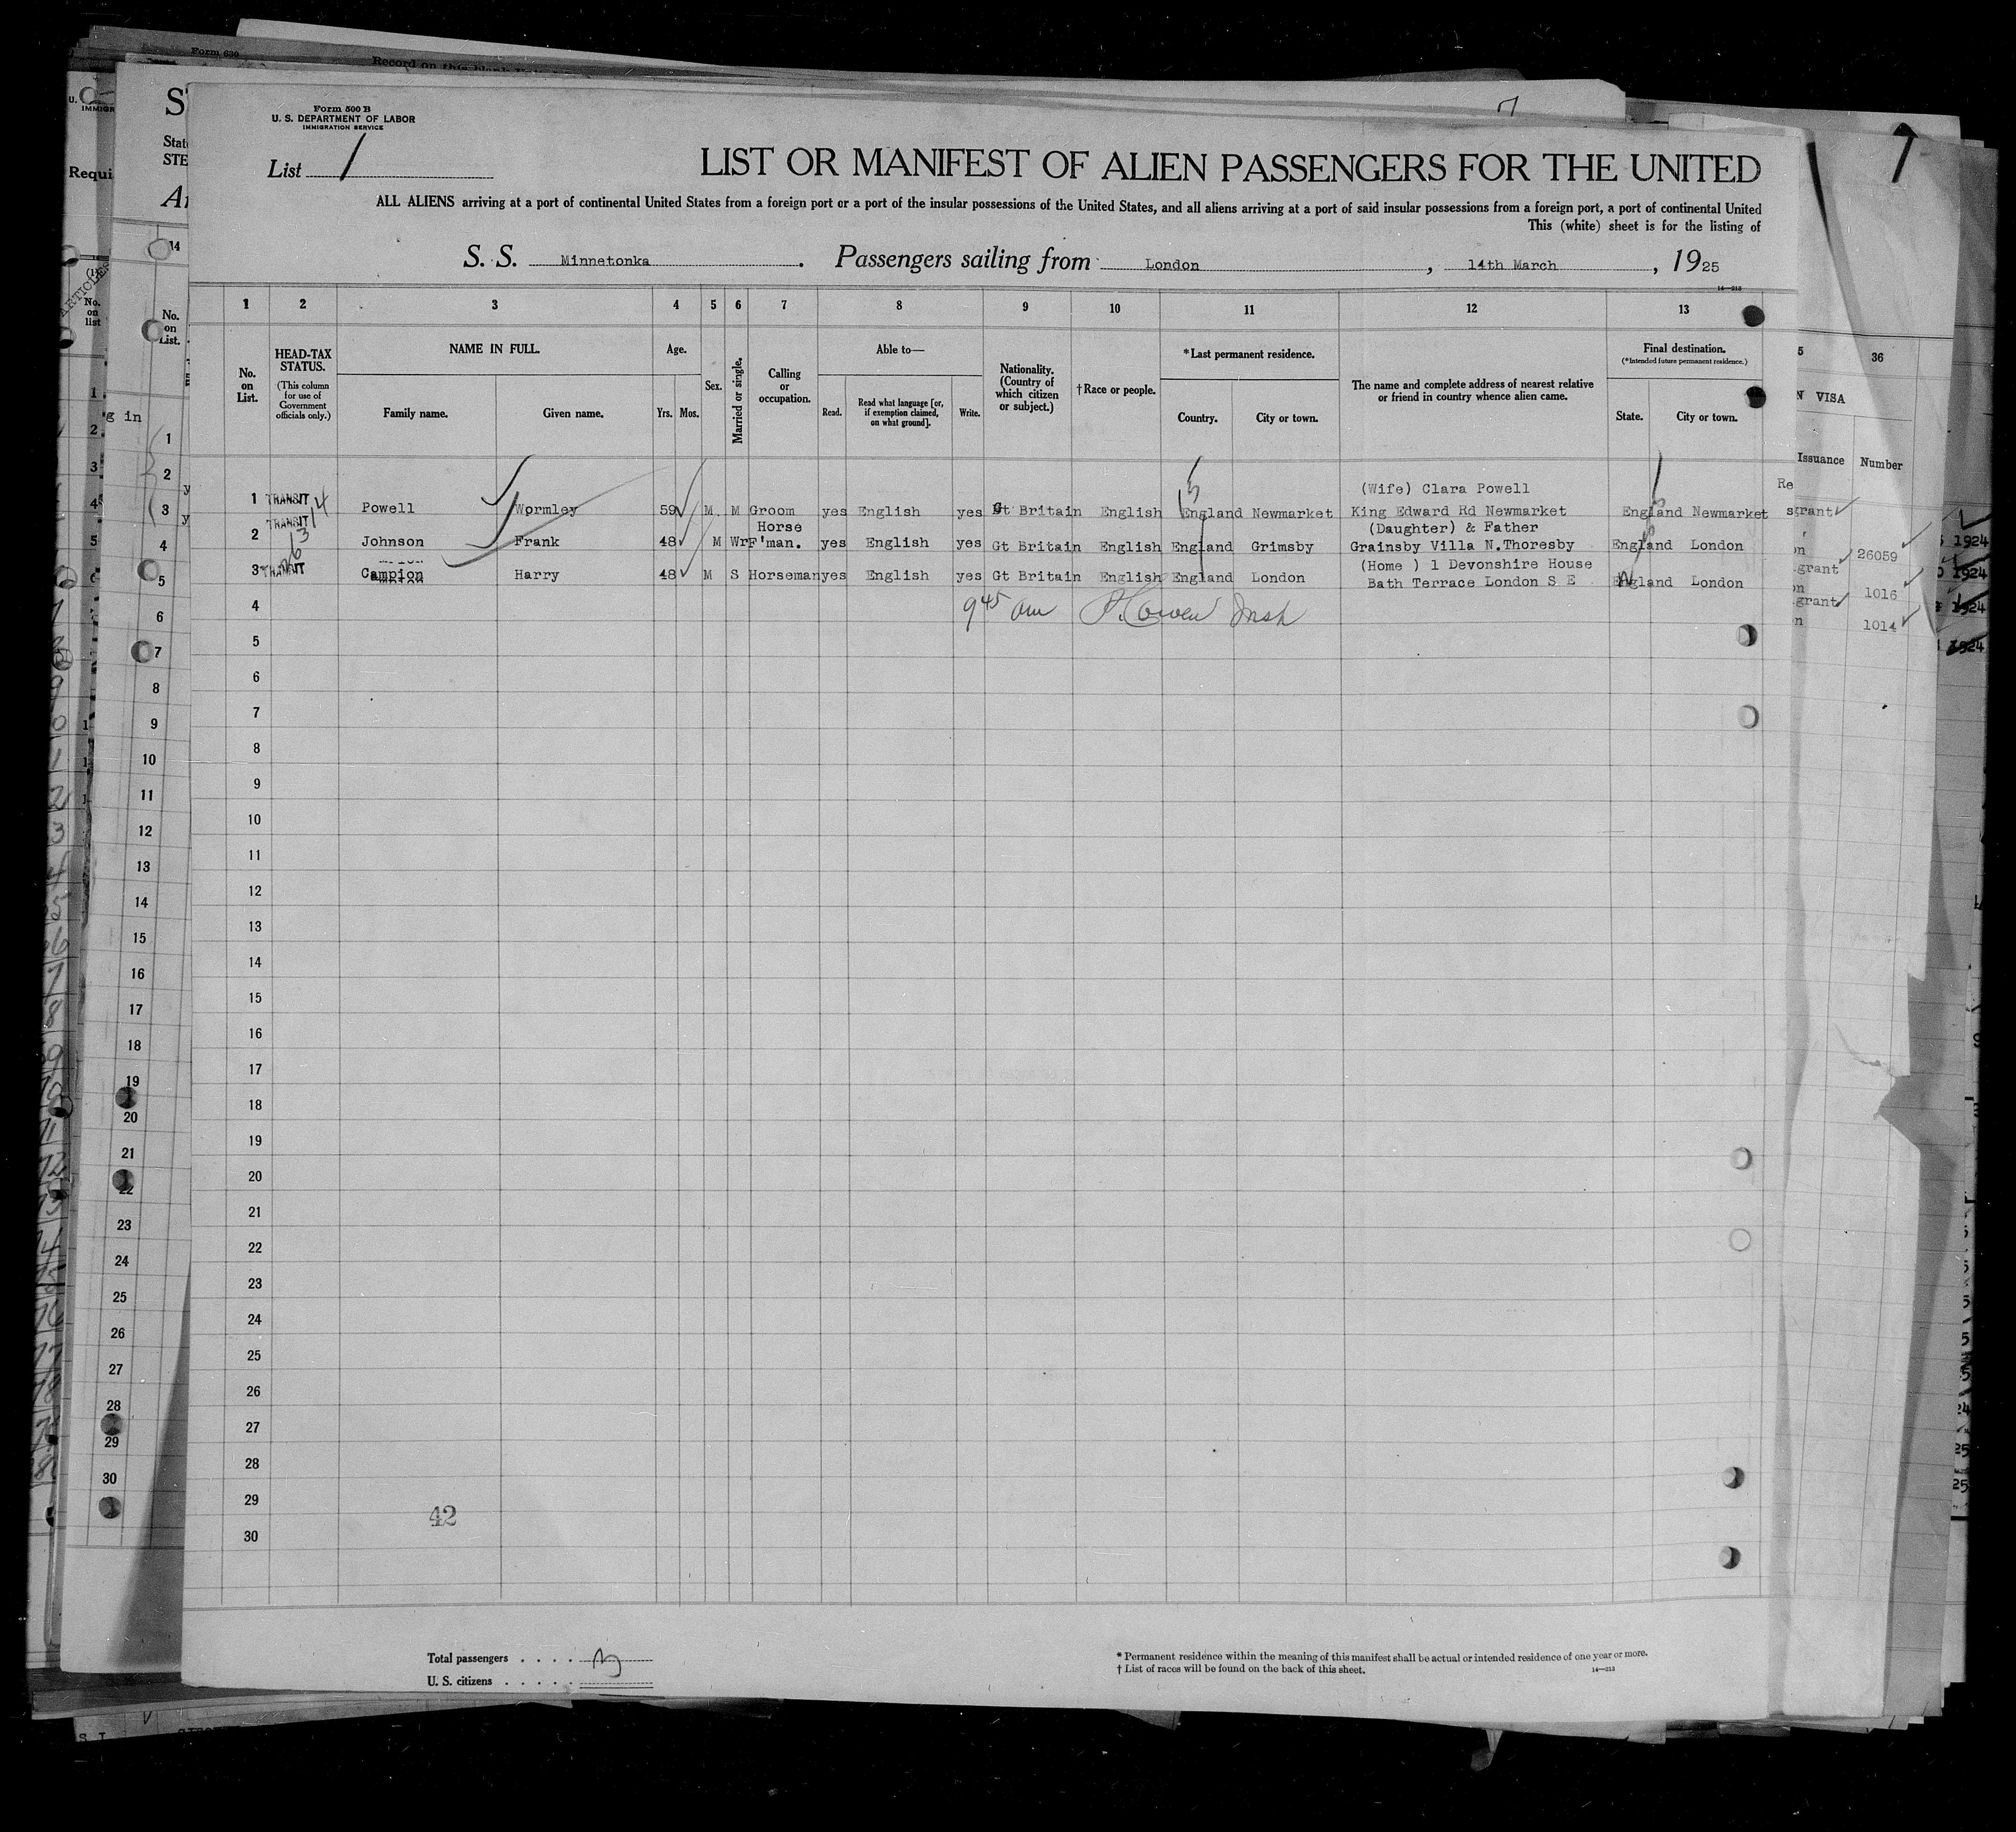 Form 630
Record on this blank
Form 500 B
U. S. DEPARTMENT OF LABOR
IMMIGRATION SERVICE
List 1
LIST OR MANIFEST OF ALIEN PASSENGERS FOR THE UNITED
ALL ALIENS arriving at a port of continental United States from a foreign port or a port of the insular possessions of the United States, and all aliens arriving at a port of said insular possessions from a foreign port, a port of continental United
This (white) sheet is for the listing of
S. S. Minnetonka. Passengers sailing from London, 14th March, 1925
14—213
1 2 3 4 5 6 7 8 9 10 11 12 13
No. on List.
HEAD-TAX STATUS.
(This column for use of Government officials only.)
NAME IN FULL.
Family name. Given name.
Age.
Yrs. Mos.
Sex.
Married or single.
Calling or occupation.
Able to—
Read. Read what language [or, if exemption claimed, on what ground]. Write.
Nationality. (Country of which citizen or subject.)
†Race or people.
*Last permanent residence.
Country. City or town.
The name and complete address of nearest relative or friend in country whence alien came.
Final destination.
(*Intended future permanent residence.)
State. City or town.
(Wife) Clara Powell
1 TRANSIT Powell Wormley 59 M M Groom yes English yes Gt Britain English England Newmarket King Edward Rd Newmarket England Newmarket
Horse (Daughter) & Father
2 TRANSIT Johnson Frank 48 M Wr F'man. yes English yes Gt Britain English England Grimsby Grainsby Villa N.Thoresby England London
(Home ) 1 Devonshire House
3 TRANSIT Campion Harry 48 M S Horseman yes English yes Gt Britain English England London Bath Terrace London S E England London
4
9 45 am
5
6
7
8
9
10
11
12
13
14
15
16
17
18
19
20
21
22
23
24
25
26
27
28
29
30
42
Total passengers . . . . 3
U. S. citizens . . . . .
* Permanent residence within the meaning of this manifest shall be actual or intended residence of one year or more.
† List of races will be found on the back of this sheet.
14—213
36
VISA
Issuance Number
26059
1016
1014
1924
1924
1924
1924